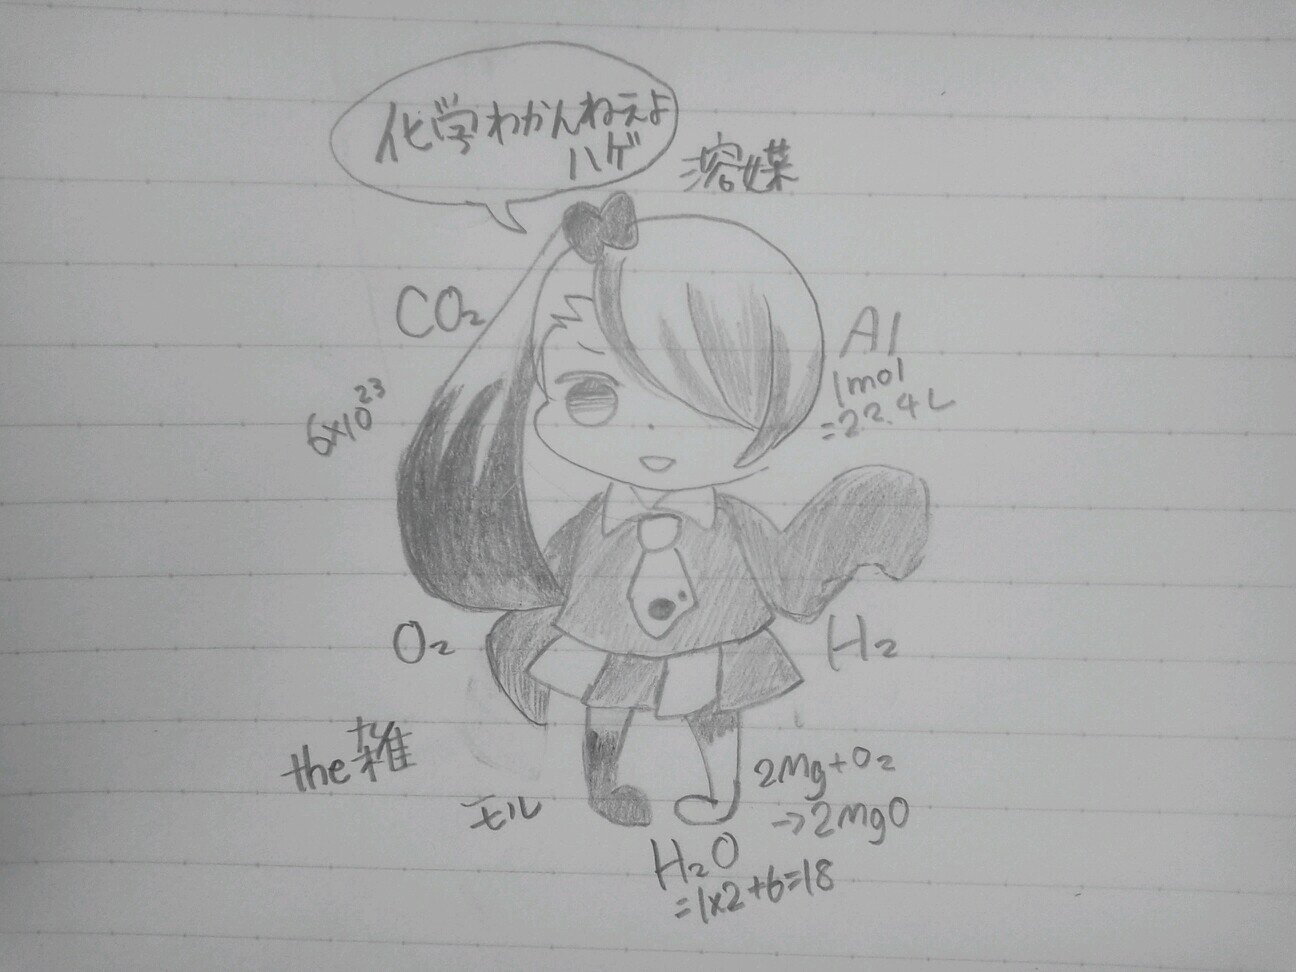 化学わかんねえよ
ハゲ
溶媒
CO₂
Al
1mol
=22.4L
6×10²³
O₂
H₂
the雑
モル
2Mg+O₂
→2MgO
H₂O
=1×2+6=18